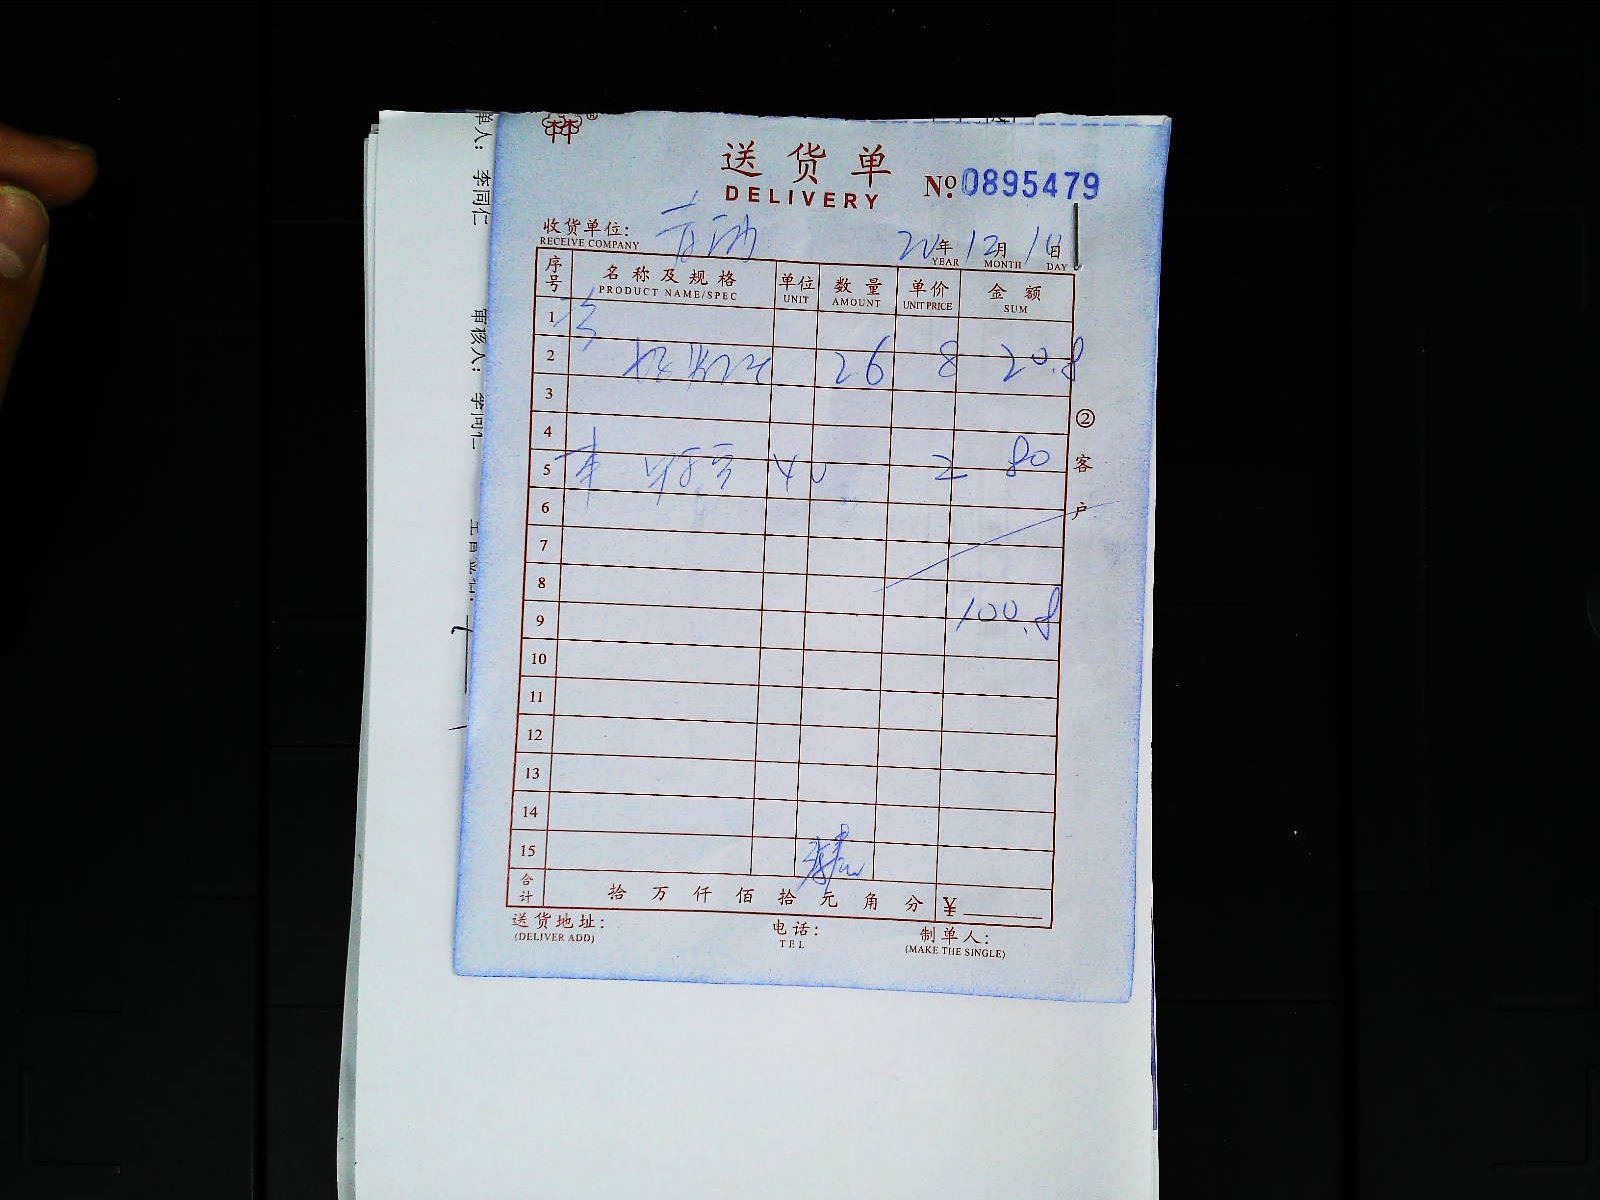 林®
送货单
DELIVERY
№ 0895479
收货单位:
RECEIVE COMPANY
年 12月 日
YEAR MONTH DAY
序号 名称及规格 单位 数量 单价 金额
PRODUCT NAME/SPEC UNIT AMOUNT UNIT PRICE SUM
1
2 26 8 20.8
3
4
5 2 80
6
7
8
9 100.8
10
11
12
13
14
15
合计 拾 万 仟 佰 拾 元 角 分 ¥
② 客户
送货地址: 电话: 制单人:
(DELIVER ADD) TEL (MAKE THE SINGLE)
单人: 李同仁
审核人: 李同仁